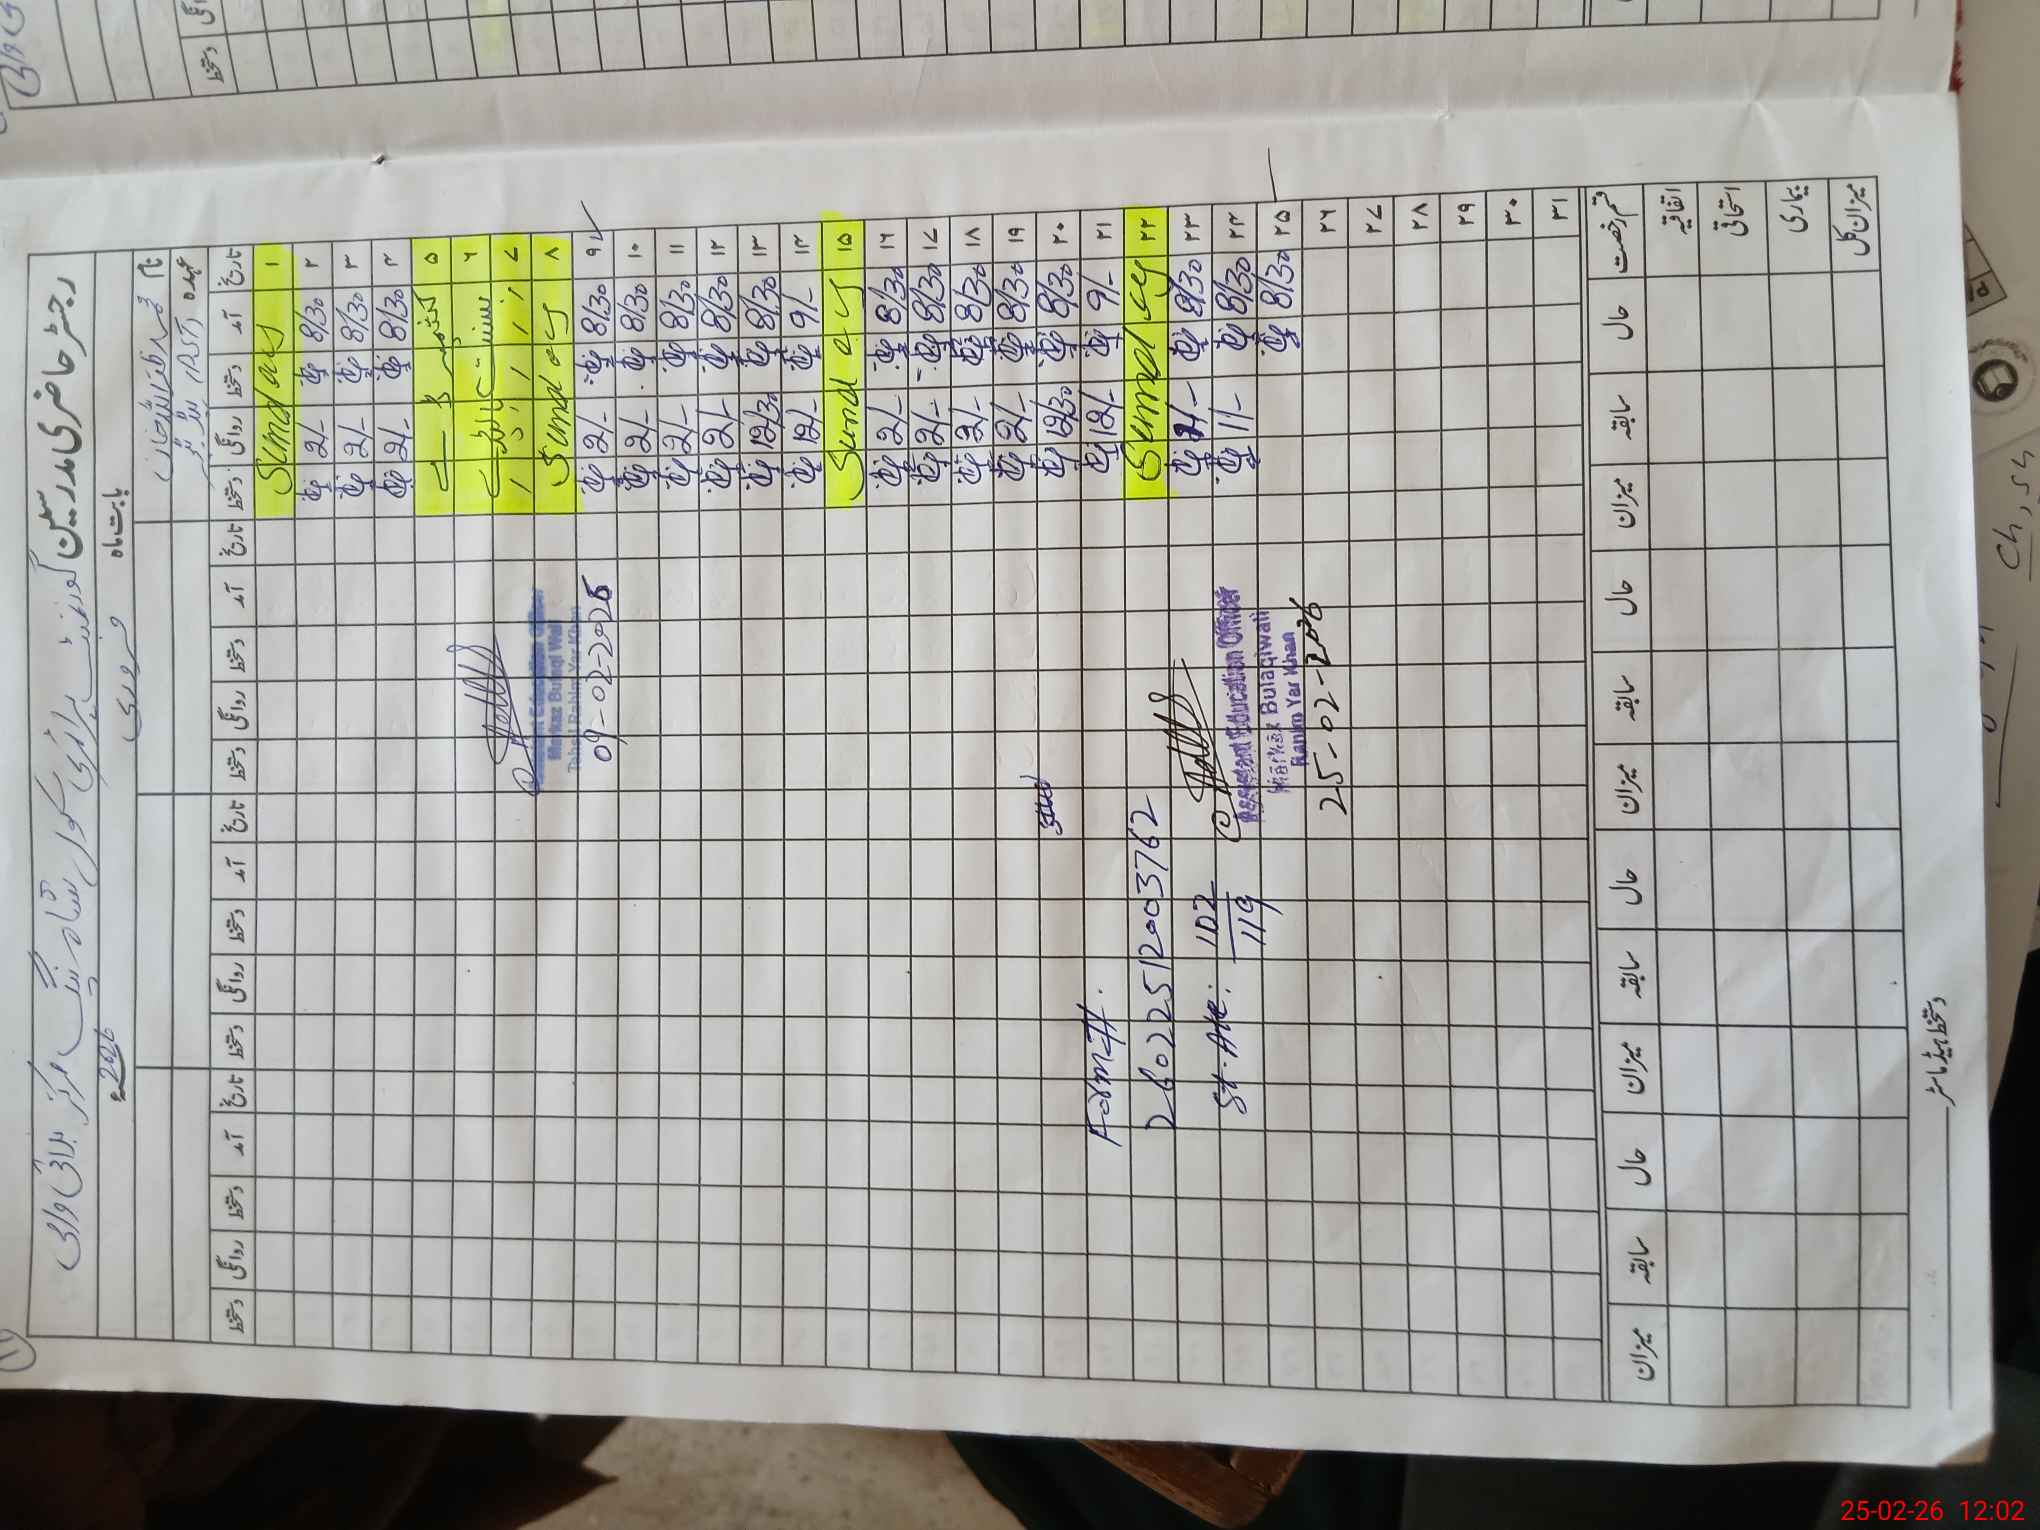 رجسٹر حاضری مدرسین گورنمنٹ پرائمری سکول
بابت ماہ فروری 2026ء
نام
عہدہ PST
تاریخ آمد دستخط روانگی دستخط تاریخ آمد دستخط روانگی دستخط تاریخ آمد دستخط روانگی دستخط تاریخ آمد دستخط روانگی دستخط
۱ Sunday
۲ 8/30 2/-
۳ 8/30 2/-
۴ 8/30 2/-
۵ کشمیر ڈے
۶
۷
۸ Sunday
۹ 8/30 2/-
۱۰ 8/30 2/-
۱۱ 8/30 2/-
۱۲ 8/30 2/-
۱۳ 8/30 12/30
۱۴ 9/- 12/-
۱۵ Sunday
۱۶ 8/30 2/-
۱۷ 8/30 2/-
۱۸ 8/30 2/-
۱۹ 8/30 2/-
۲۰ 8/30 12/30
۲۱ 9/- 12/-
۲۲ Sunday
۲۳ 8/30 2/-
۲۴ 8/30 11/-
۲۵ 8/30
۲۶
۲۷
۲۸
۲۹
۳۰
۳۱
Assistant Education Officer
Markaz Bulaqi Wali
Tehsil Rahim Yar Khan
09-02-2026
Form #.
26022512003762
St. Att: 102
119
Assistant Education Officer
Markaz Bulaqiwali
Rahim Yar Khan
25-02-2026
قسم رخصت حال سابقہ میزان حال سابقہ میزان حال سابقہ میزان حال سابقہ میزان
اتفاقیہ
استحقاقی
بیماری
میزان کل
دستخط ہیڈ ماسٹر
25-02-26 12:02